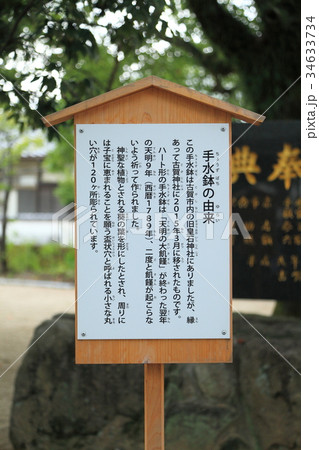 手水鉢の由来
ちょうずばち
この手水鉢は古賀市内の旧皇石神社にありましたが、縁
あって古賀神社に2015年3月に移されたものです。
ハート形の手水鉢は「天明の大飢饉」が終わった翌年
の天明9年（西暦1789年）、二度と飢饉が起こらな
いよう祈って作られました。
神聖な植物とされる葵の葉を形にしたとされ、周りに
は子宝に恵まれることを願う盃状穴と呼ばれる小さな丸
い穴が120ヶ所彫られています。
奉
典
PIXTA
pixta.jp - 34633734